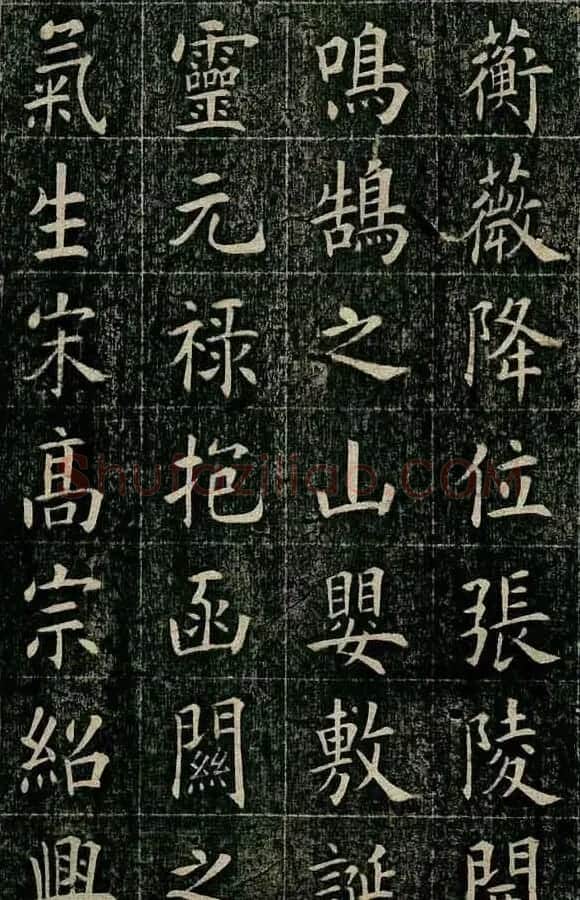 蘅薇降位張陵開
鳴鵠之山嬰敷誕
靈元禄抱函關之
氣生宋髙宗紹興
Shufaziliao.COM